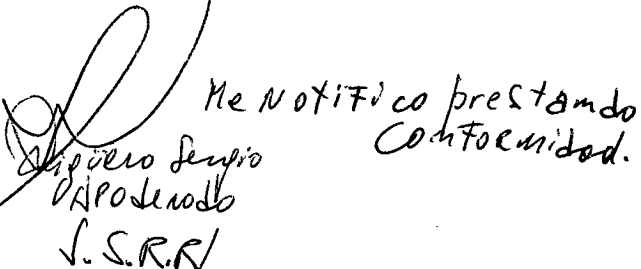 Me Notifico prestando
Conformidad.
Sergio
Apoderado